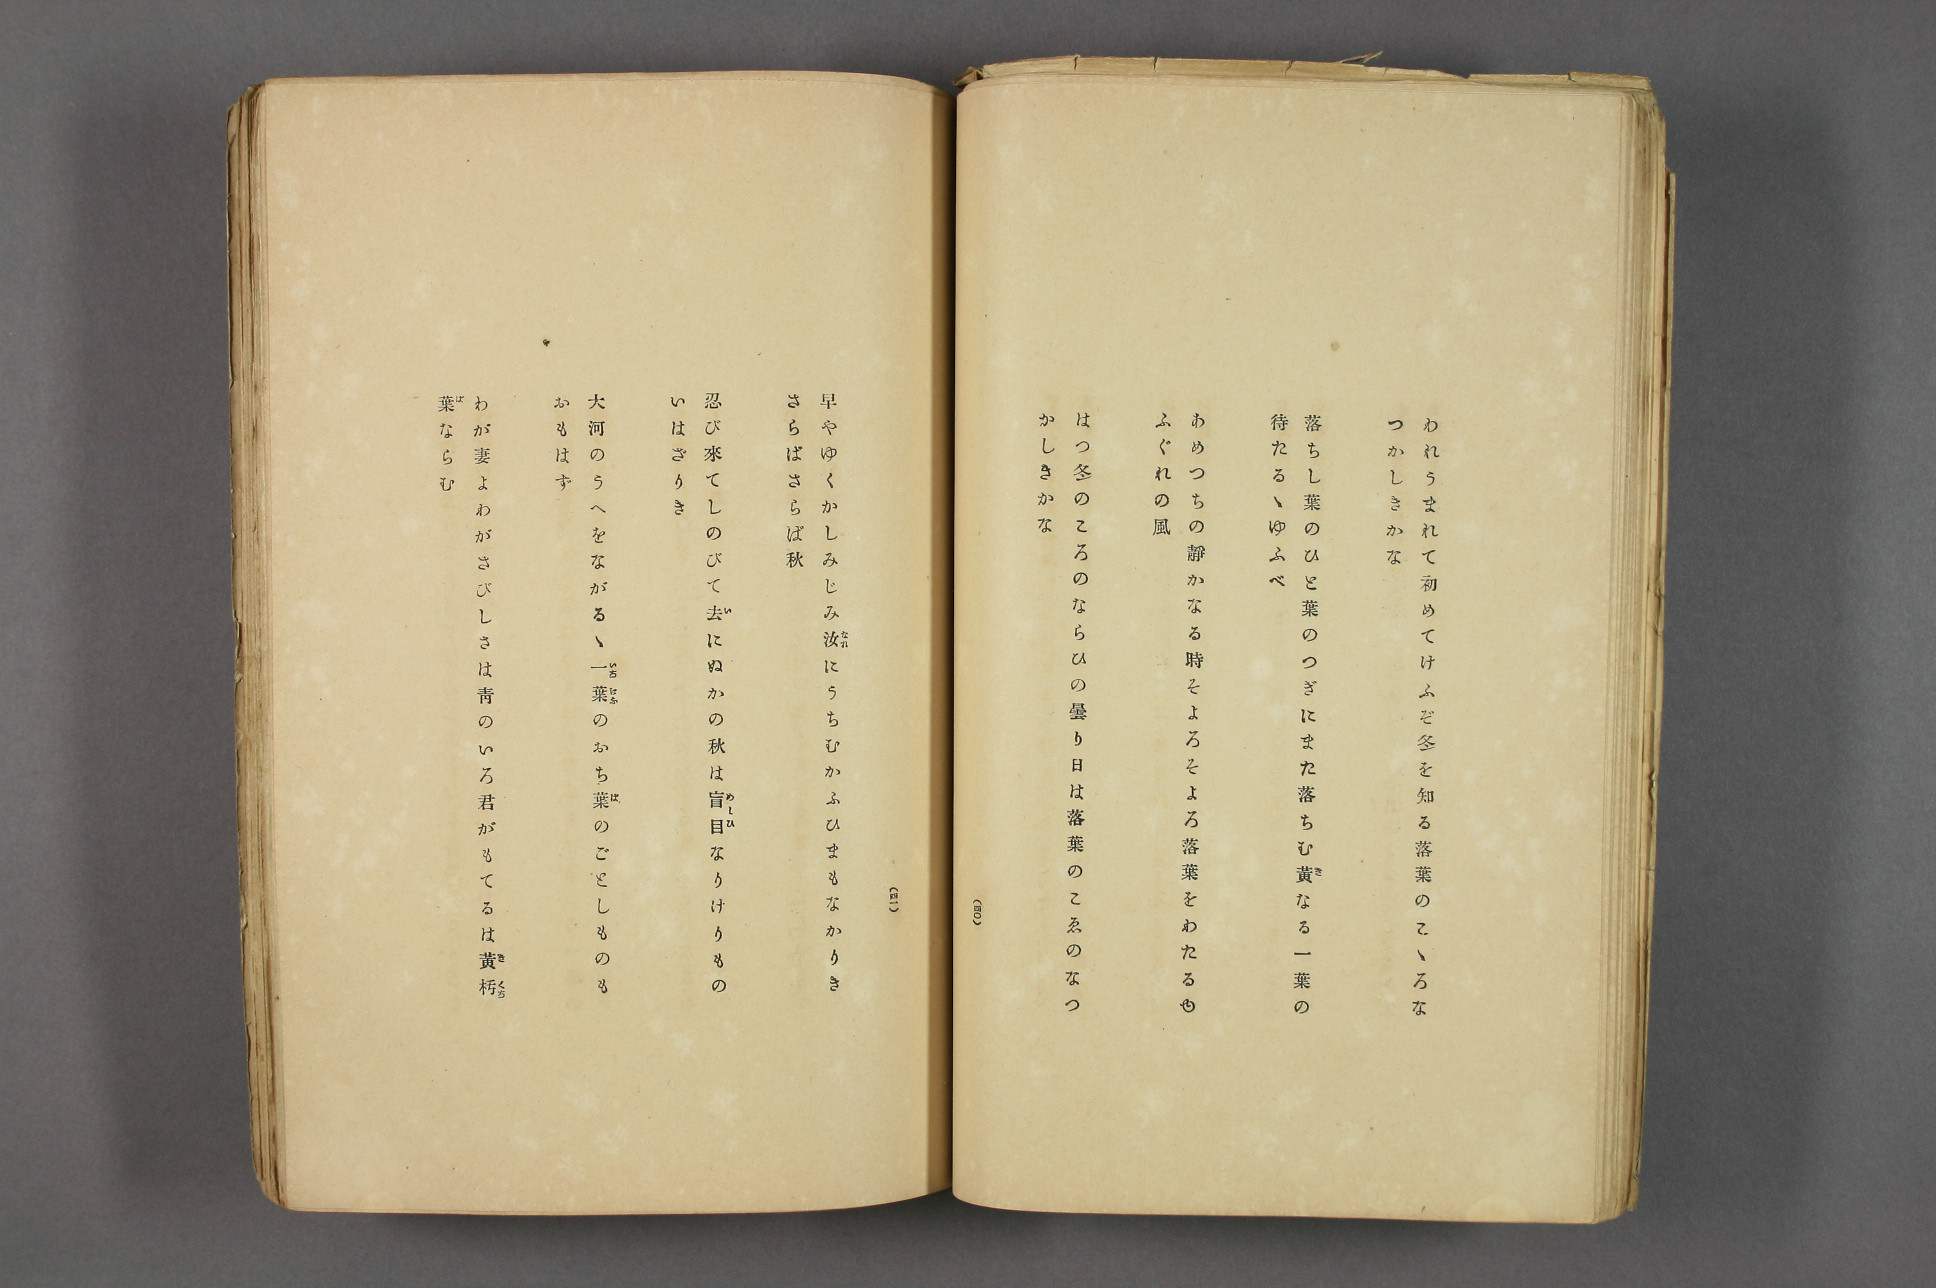 われうまれて初めてけふぞ冬を知る落葉のこゝろな
つかしきかな
落ちし葉のひと葉のつぎにまた落ちむ黄なる一葉の
待たるゝゆふべ
あめつちの靜かなる時そよろそよろ落葉をわたるゆ
ふぐれの風
はつ冬のころのならひの曇り日は落葉のこゑのなつ
かしきかな
(四〇)
(四一)
早やゆくかしみじみ汝にうちむかふひまもなかりき
さらばさらば秋
忍び來てしのびて去にぬかの秋は盲目なりけりもの
いはざりき
大河のうへをながるゝ一葉のおち葉のごとしものも
おもはず
わが妻よわがさびしさは靑のいろ君がもてるは黄朽
葉ならむ